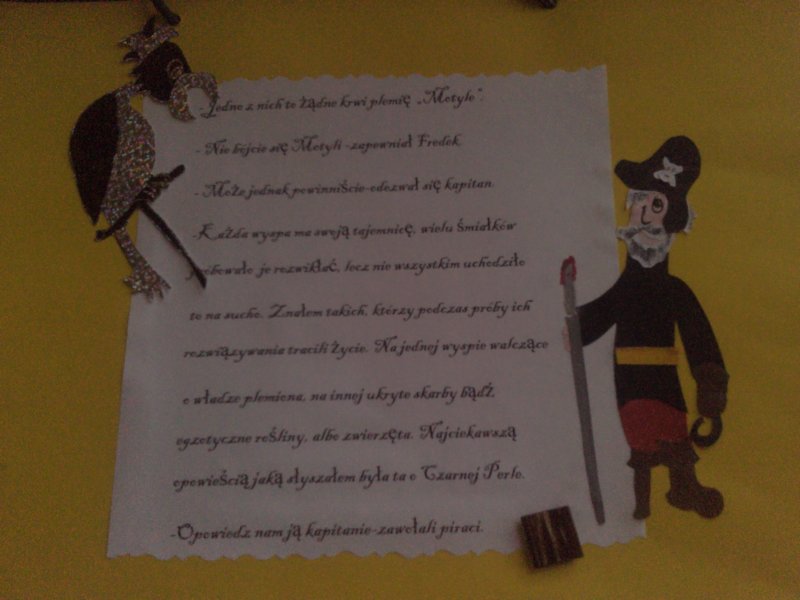 -Jedno z nich to żądne krwi plemię „Motyle".
- Nie bójcie się Motyli -zapewniał Fredek.
- Może jednak powinniście-odezwał się kapitan.
-Każda wyspa ma swoją tajemnicę, wielu śmiałków
próbowało je rozwikłać, lecz nie wszystkim uchodziło
to na sucho. Znałem takich, którzy podczas próby ich
rozwiązywania tracili życie. Na jednej wyspie walczące
o władze plemiona, na innej ukryte skarby bądź
egzotyczne rośliny, albo zwierzęta. Najciekawszą
opowieścią jaką słyszałem była ta o Czarnej Perle.
-Opowiedz nam ją kapitanie-zawołali piraci.